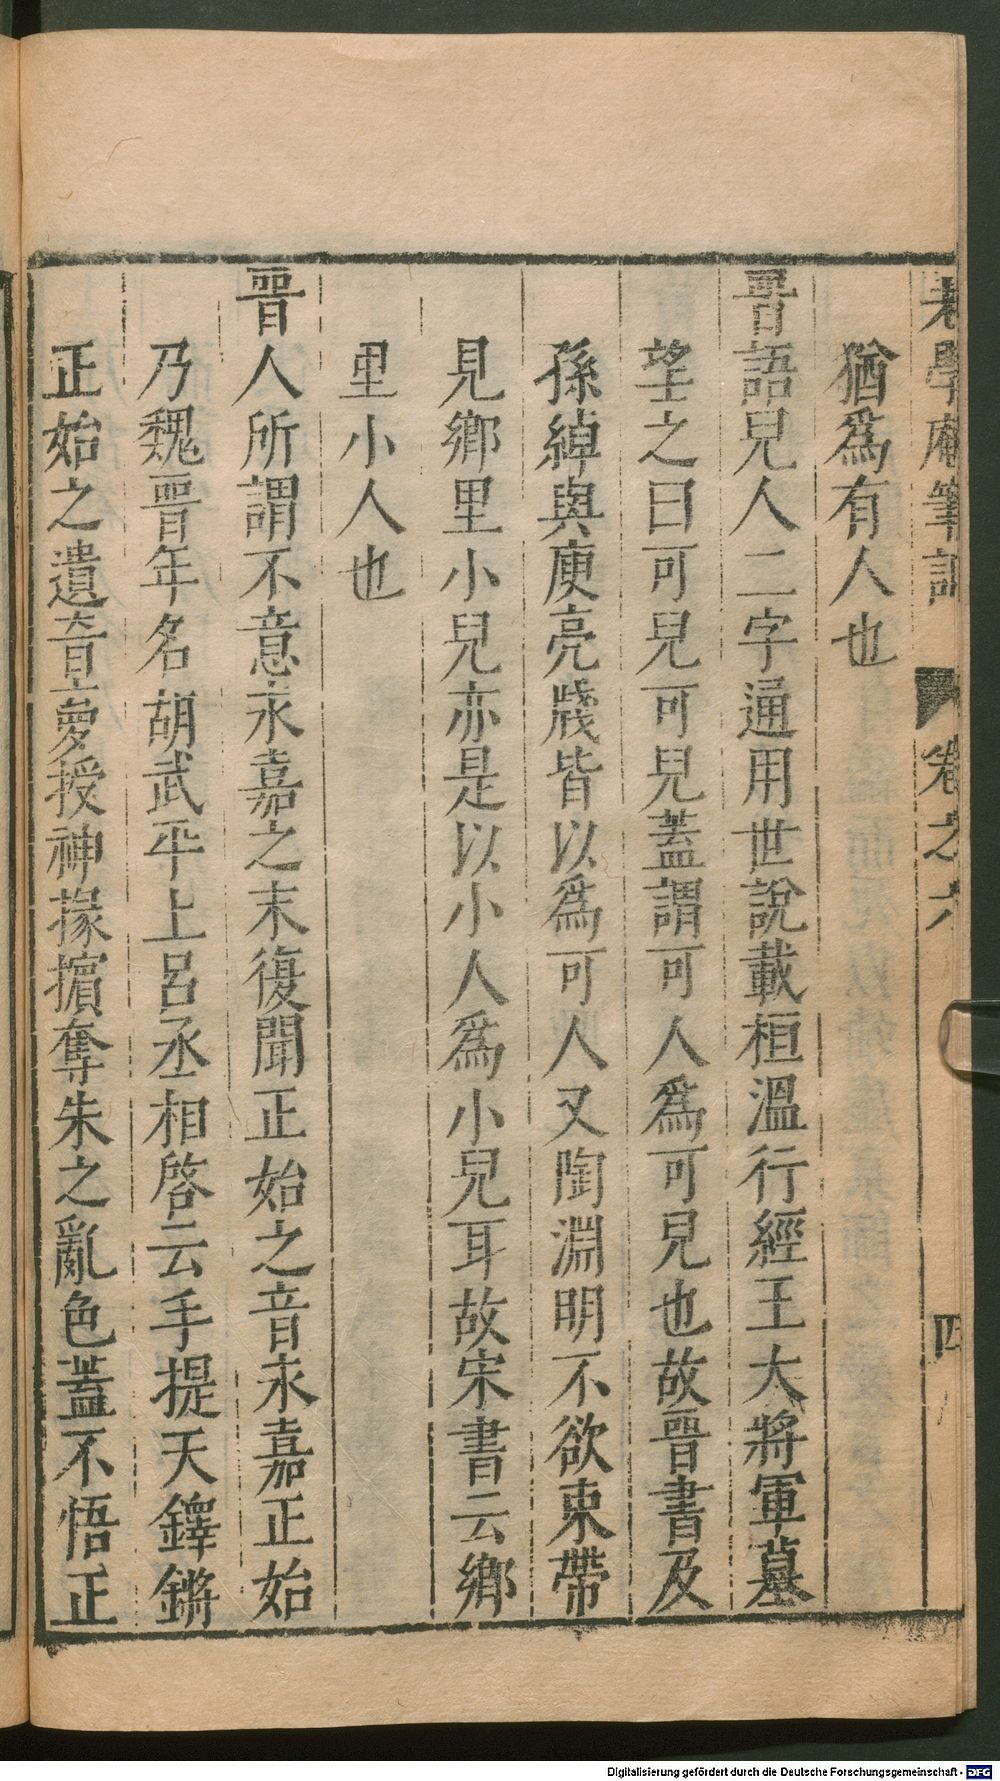 老學庵筆記 卷之六 四
猶爲有人也
晉語兒人二字通用世說載桓溫行經王大將軍墓
望之曰可兒可兒蓋謂可人爲可兒也故晉書及
孫綽與庾亮牋皆以爲可人又陶淵明不欲束帶
見鄉里小兒亦是以小人爲小兒耳故宋書云鄉
里小人也
晉人所謂不意永嘉之末復聞正始之音永嘉正始
乃魏晉年名胡武平上呂丞相啓云手提天鐸鏘
正始之遺音夢授神椽擯奪朱之亂色蓋不悟正
Digitalisierung gefördert durch die Deutsche Forschungsgemeinschaft - DFG